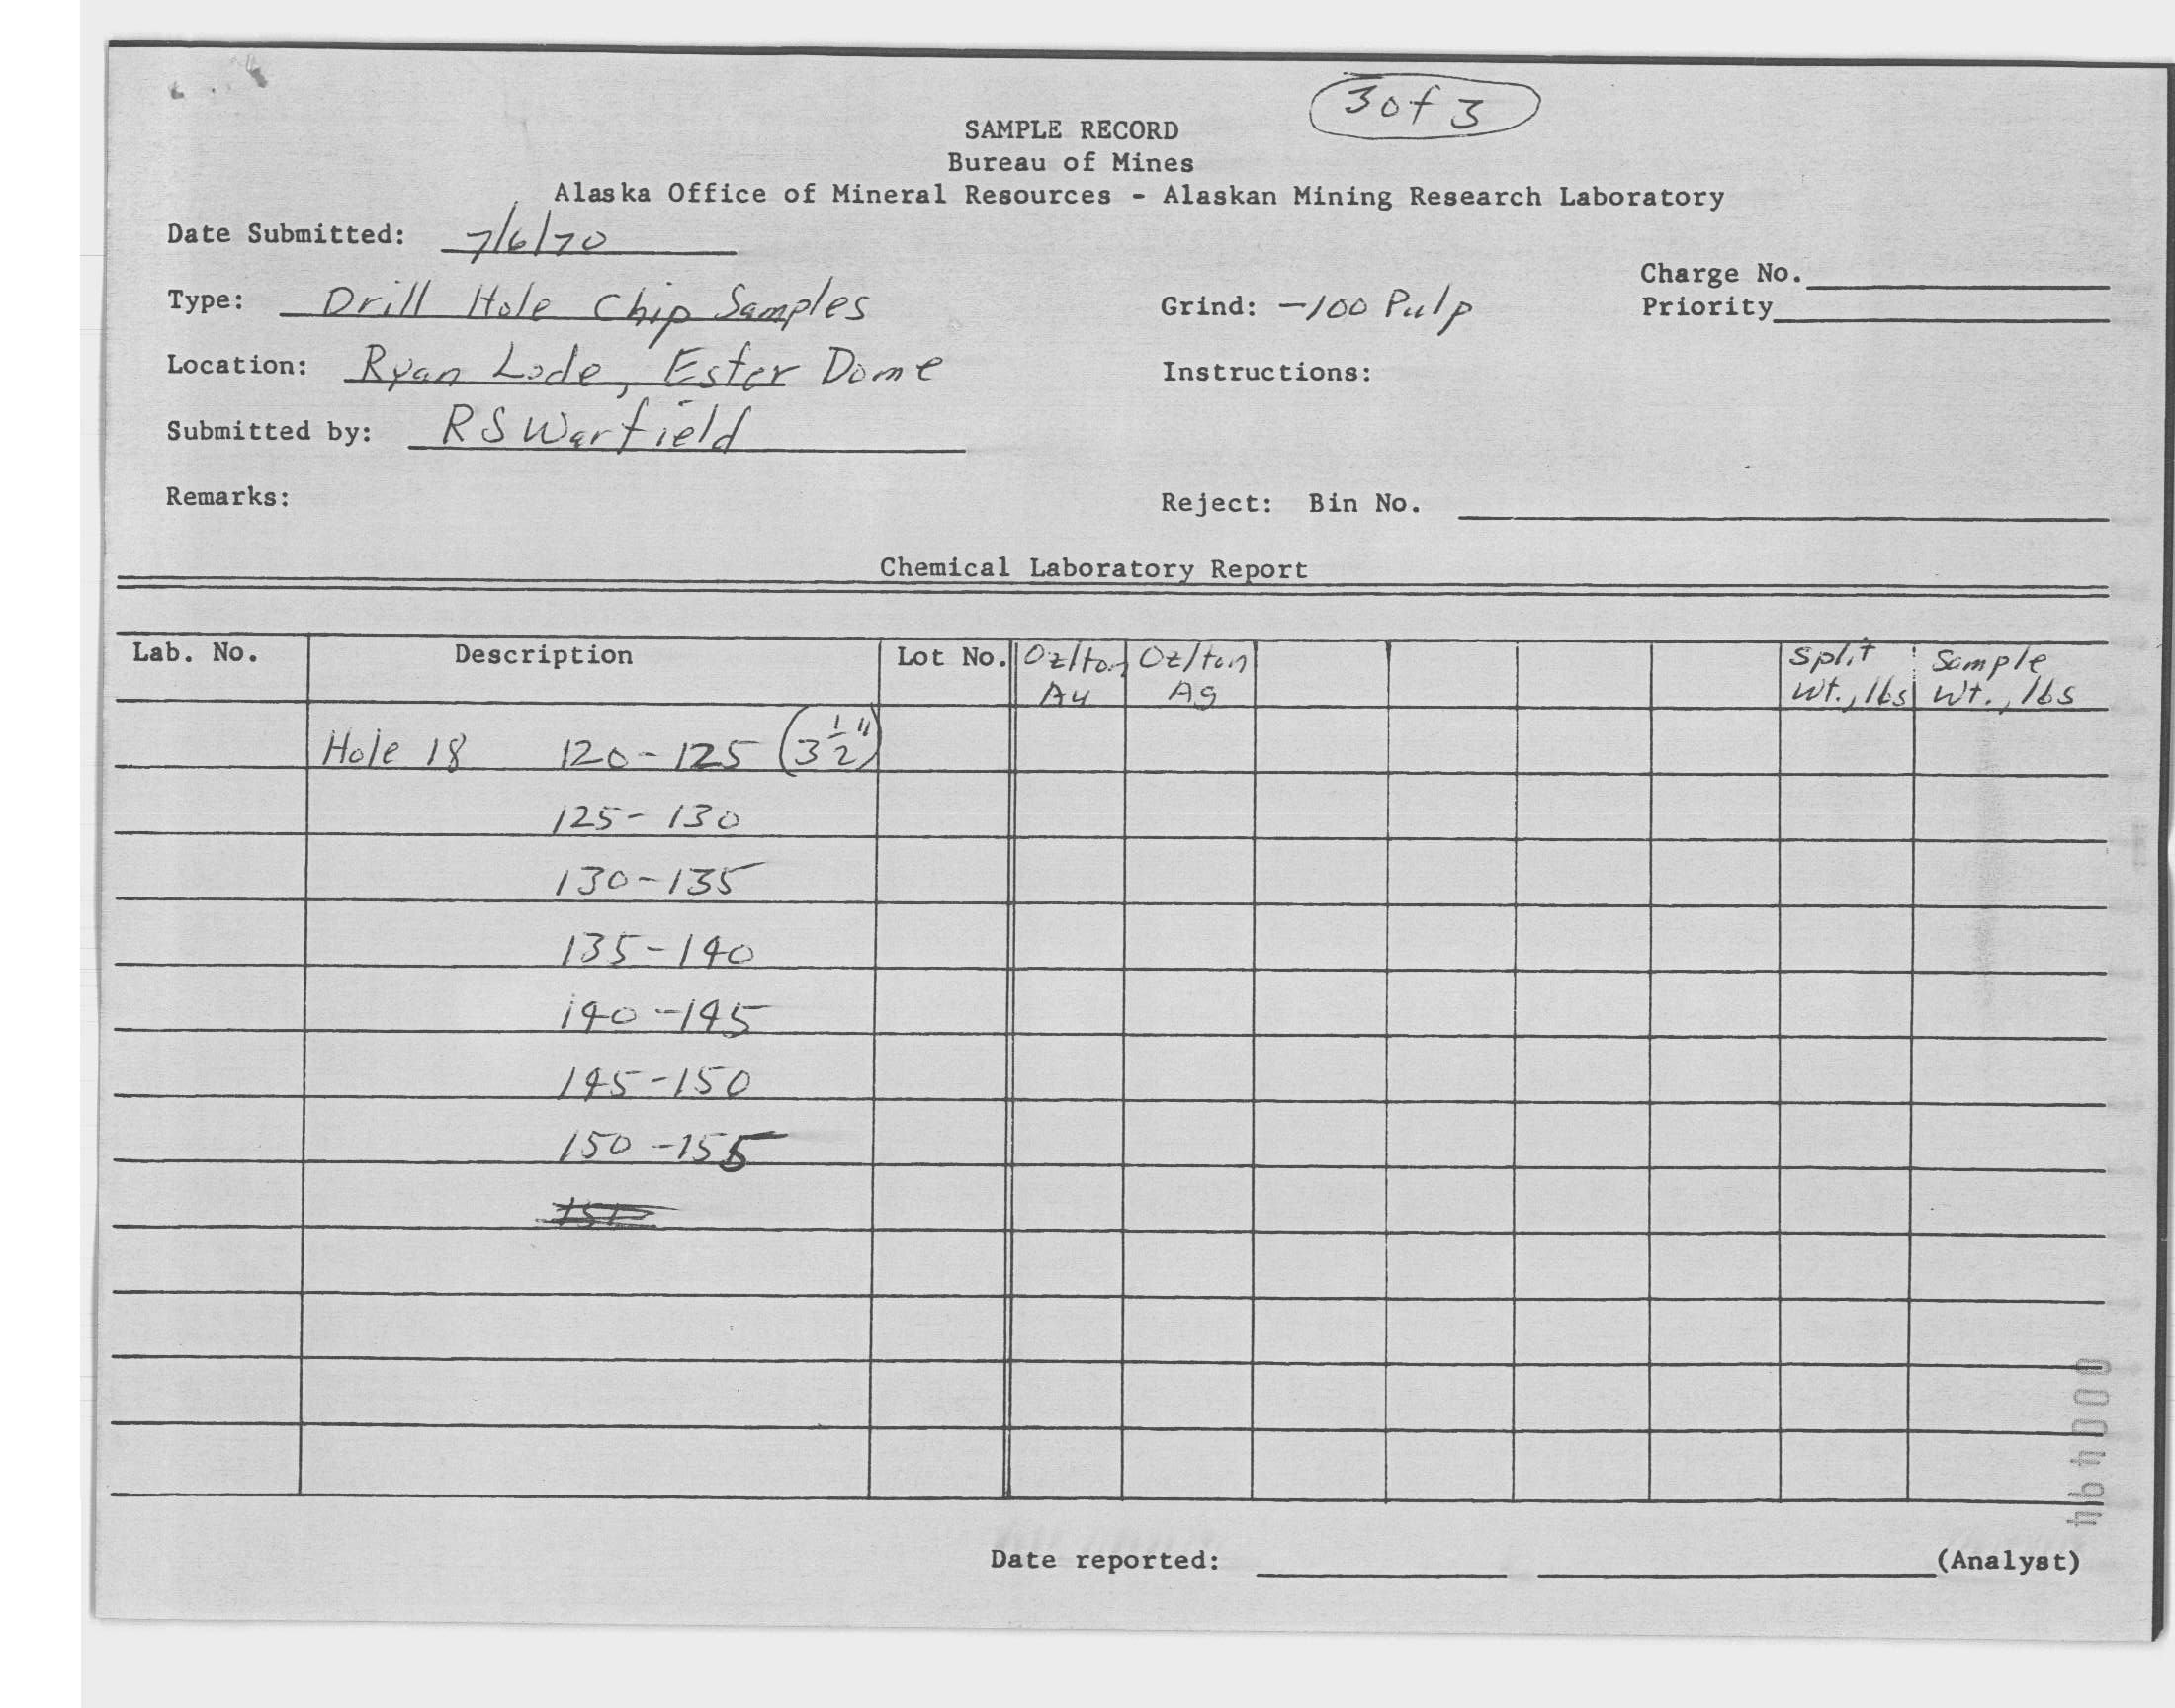 3 of 3
SAMPLE RECORD
Bureau of Mines
Alaska Office of Mineral Resources - Alaskan Mining Research Laboratory
Date Submitted: 7/6/70
Charge No.
Type: Drill Hole Chip Samples Grind: -100 Pulp Priority
Location: Ryan Lode, Ester Dome Instructions:
Submitted by: RS Warfield
Remarks: Reject: Bin No.
Chemical Laboratory Report
Lab. No. Description Lot No. Oz/ton Au Oz/ton Ag Split Wt., lbs Sample Wt., lbs
Hole 18 120-125 (3 1/2")
125-130
130-135
135-140
140-145
145-150
150-155
Date reported: (Analyst)